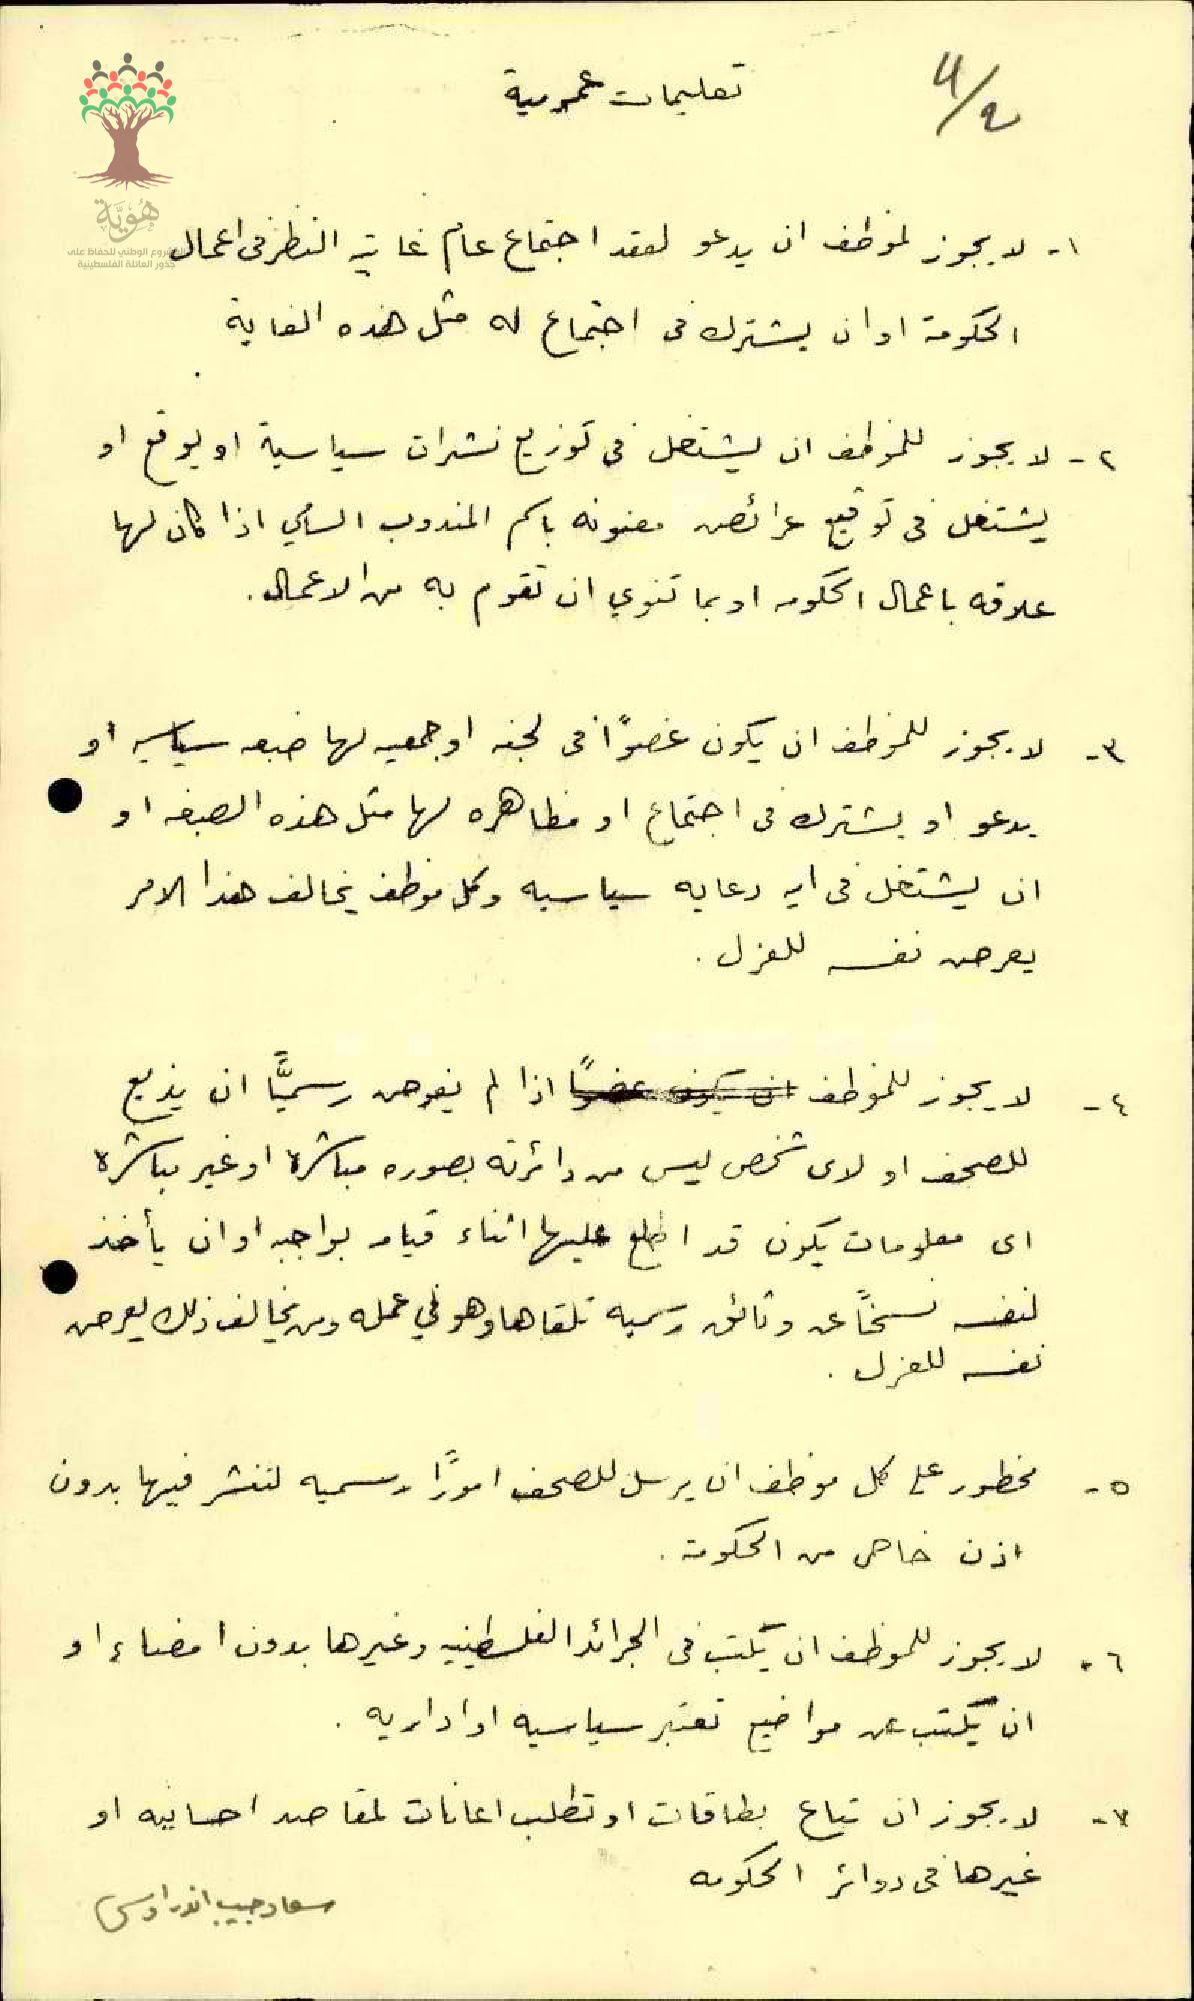 4/2
تعليمات عمومية
هُوِيَّة
المشروع الوطني للحفاظ على
جذور العائلة الفلسطينية
١- لا يجوز لموظف ان يدعو لعقد اجتماع عام غايته النظر فى اعمال
الحكومة او ان يشترك فى اجتماع له مثل هذه الغاية
٢- لا يجوز للموظف ان يشتغل فى توزيع نشرات سياسية او يوقع او
يشتغل فى توقيع عرائض معنونه باسم المندوب السامي اذا كان لها
علاقه باعمال الحكومه او بما تنوي ان تقوم به من الاعمال.
٣- لا يجوز للموظف ان يكون عضوًا فى لجنه او جمعيه لها صبغه سياسيه او
يدعو او يشترك فى اجتماع او مظاهره لها مثل هذه الصبغه او
ان يشتغل فى ايه دعايه سياسيه وكل موظف يخالف هذا الامر
يعرض نفسه للعزل.
٤- لا يجوز للموظف ان يكون عضوًا اذا لم يفوض رسميًّا ان يذيع
للصحف او لاى شخص ليس من دائرته بصوره مباشرة او غير مباشرة
اى معلومات يكون قد اطلع عليها اثناء قيامه بواجبه او ان يأخذ
لنفسه نسخًا عن وثائق رسميه تلقاها وهو في عمله ومن يخالف ذلك يعرض
نفسه للعزل.
٥- محظور على كل موظف ان يرسل للصحف امورًا رسميه لتنشر فيها بدون
اذن خاص من الحكومة.
٦- لا يجوز للموظف ان يكتب فى الجرائد الفلسطينيه وغيرها بدون امضاء او
ان يكتب عن مواضيع تعتبر سياسيه او اداريه.
٧- لا يجوز ان تباع بطاقات او تطلب اعانات لمقاصد احسانيه او
غيرها فى دوائر الحكومه
سعاد حبيب اندراوس